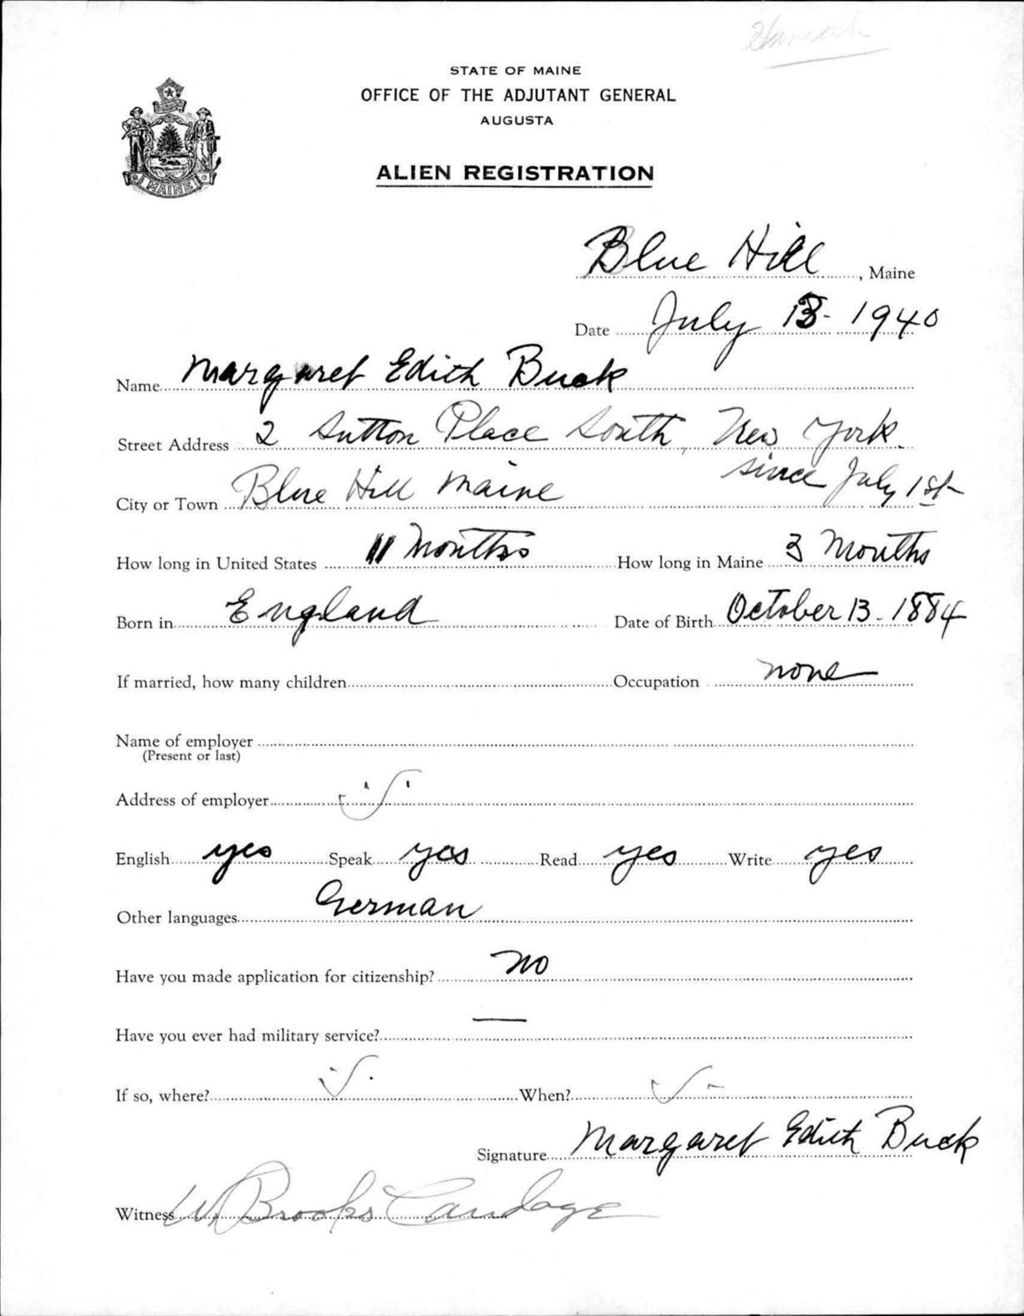 STATE OF MAINE
OFFICE OF THE ADJUTANT GENERAL
AUGUSTA
ALIEN REGISTRATION
MAINE
Blue Hill, Maine
Date July 13 - 1940
Name Margaret Edith Buck
Street Address 2 Sutton Place South, New York.
since July 1st
City or Town Blue Hill Maine
How long in United States 11 Months How long in Maine 3 Months
Born in England Date of Birth October 13 - 1884
If married, how many children Occupation none
Name of employer
(Present or last)
Address of employer
English yes Speak yes Read yes Write yes
Other languages German
Have you made application for citizenship? no
Have you ever had military service? —
If so, where? When?
Signature Margaret Edith Buck
Witness W. Brooks Candage